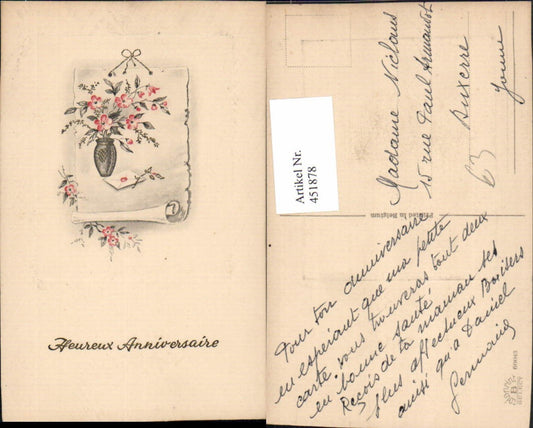 Heureux Anniversaire
Artikel Nr.
451878
Madame Niclaus
15 rue Paul Armandot
Auxerre
Yonne
63
Printed in Belgium
Pour ton anniversaire
en espérant que ma petite
carte vous trouveras tout deux
en bonne santé
Reçois de ta maman ses
plus affectueux Baisers
ainsi qu'a Daniel
Germaine